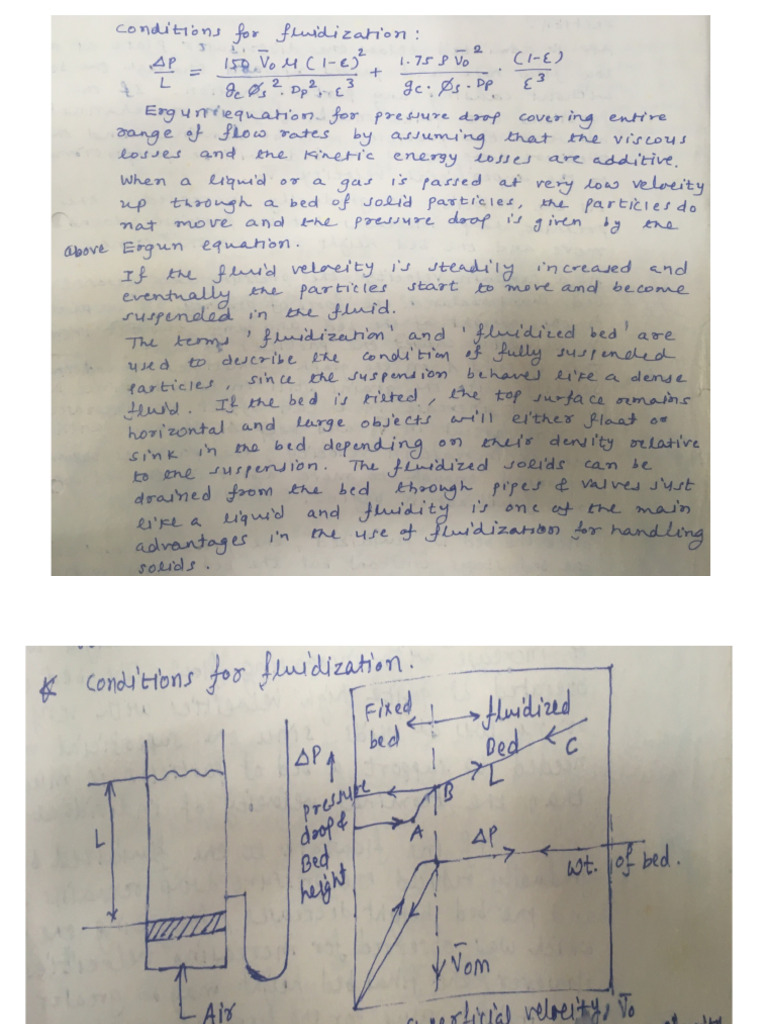 conditions for fluidization :
ΔP/L = 150 V̄o μ (1-ε)² / gc Øs² · Dp² · ε³ + 1.75 ρ V̄o² / gc · Øs · Dp · (1-ε) / ε³
Ergun equation for pressure drop covering entire
range of flow rates by assuming that the viscous
losses and the kinetic energy losses are additive.
When a liquid or a gas is passed at very low velocity
up through a bed of solid particles, the particles do
not move and the pressure drop is given by the
above Ergun equation.
If the fluid velocity is steadily increased and
eventually the particles start to move and become
suspended in the fluid.
The terms 'fluidization' and 'fluidized bed' are
used to describe the condition of fully suspended
particles, since the suspension behaves like a dense
fluid. If the bed is tilted, the top surface remains
horizontal and large objects will either float or
sink in the bed depending on their density relative
to the suspension. The fluidized solids can be
drained from the bed through pipes & valves just
like a liquid and fluidity is one of the main
advantages in the use of fluidization for handling
solids.
conditions for fluidization.
Fixed bed
fluidized Bed
ΔP
pressure
drop &
Bed
height
L
A
B
L
C
ΔP
Wt. of bed.
V̄om
Air
superficial velocity, V̄o